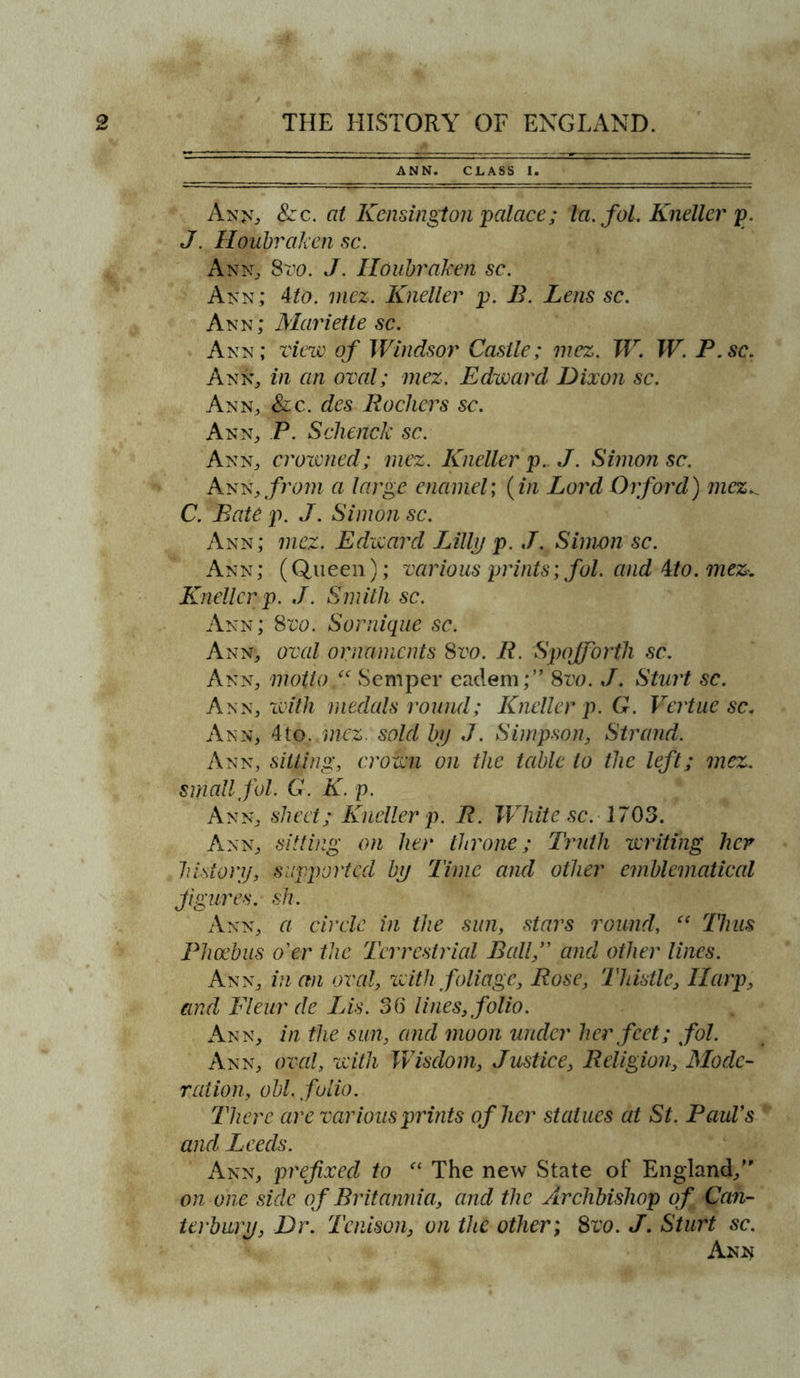 2 THE HISTORY OF ENGLAND.
ANN. CLASS I.
Ann, &c. at Kensington palace; la. fol. Kneller p.
J. Houbraken sc.
Ann, 8vo. J. Houbraken sc.
Ann; 4to. mez. Kneller p. B. Lens sc.
Ann; Mariette sc.
Ann; view of Windsor Castle; mez. W. W. P. sc.
Ann, in an oval; mez. Edward Dixon sc.
Ann, &c. des Rochers sc.
Ann, P. Schenck sc.
Ann, crowned; mez. Kneller p. J. Simon sc.
Ann, from a large enamel; (in Lord Orford) mez.
C. Bate p. J. Simon sc.
Ann; mez. Edward Lilly p. J. Simon sc.
Ann; (Queen); various prints; fol. and 4to. mez.
Kneller p. J. Smith sc.
Ann; 8vo. Sornique sc.
Ann, oval ornaments 8vo. R. Spofforth sc.
Ann, motto “ Semper eadem;” 8vo. J. Sturt sc.
Ann, with medals round; Kneller p. G. Vertue sc.
Ann, 4to. mez. sold by J. Simpson, Strand.
Ann, sitting, crown on the table to the left; mez.
small fol. G. K. p.
Ann, sheet; Kneller p. R. White sc. 1703.
Ann, sitting on her throne; Truth writing her
history, supported by Time and other emblematical
figures. sh.
Ann, a circle in the sun, stars round, “ Thus
Phœbus o'er the Terrestrial Ball,” and other lines.
Ann, in an oval, with foliage, Rose, Thistle, Harp,
and Fleur de Lis. 36 lines, folio.
Ann, in the sun, and moon under her feet; fol.
Ann, oval, with Wisdom, Justice, Religion, Mode-
ration, obl. folio.
There are various prints of her statues at St. Paul's
and Leeds.
Ann, prefixed to “ The new State of England,”
on one side of Britannia, and the Archbishop of Can-
terbury, Dr. Tenison, on the other; 8vo. J. Sturt sc.
Ann